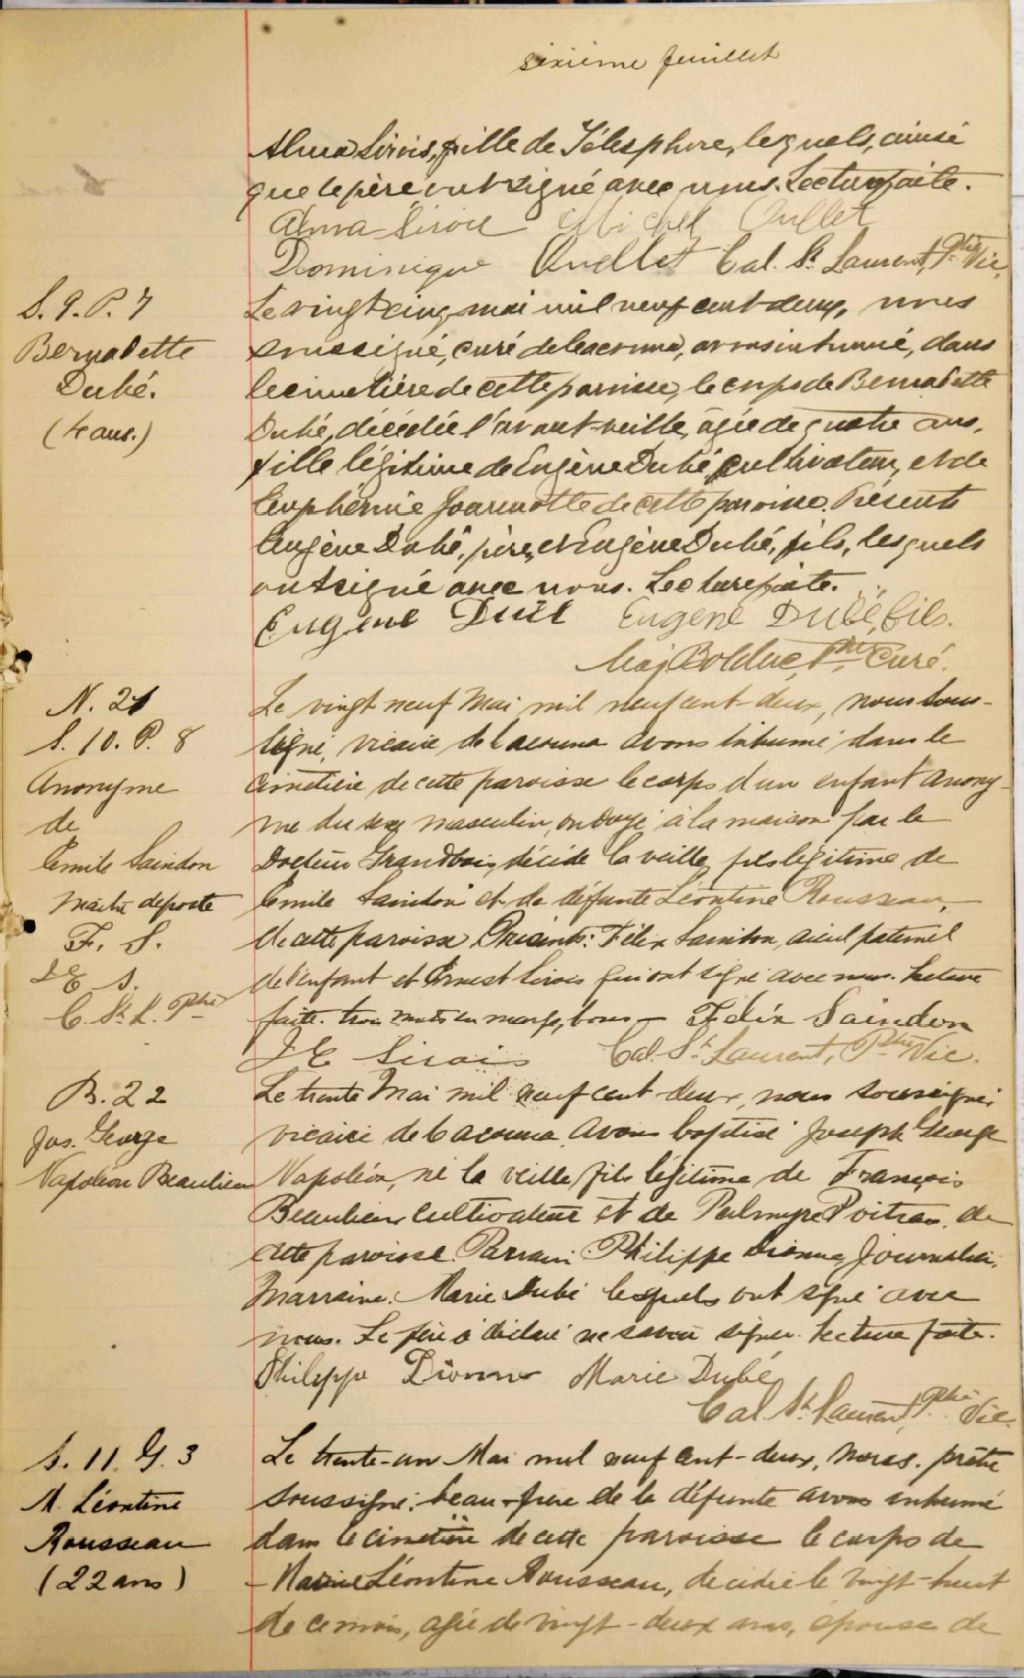 sixième feuillet
Alma Sirois, fille de Télesphore, lesquels, ainsi
que le père ont signé avec nous. Lecture faite.
Alma Sirois Michel Ouellet
Dominique Ouellet Cal. St Laurent, Ptre Vic.
S. 9. P. 7
Bernadette
Dubé.
(4 ans.)
Le vingt cinq mai mil neuf cent deux, nous
soussigné, curé de Cacouna, avons inhumé, dans
le cimetière de cette paroisse, le corps de Bernadette
Dubé, décédée l'avant-veille, âgée de quatre ans,
fille légitime de Eugène Dubé, cultivateur, et de
Euphémie de cette paroisse. Présents
Eugène Dubé, père, et Eugène Dubé, fils, lesquels
ont signé avec nous. Lecture faite.
Eugène Dubé Eugène Dubé, fils.
Bolduc, Ptre Curé.
N. 21
S. 10. P. 8
Anonyme
de
Emile Saindon
Maître de poste
F. S.
J E S.
C. St. L. Ptre
Le vingt neuf Mai mil neuf cent-deux, nous sous-
signé, vicaire de Cacouna avons inhumé dans le
cimetière de cette paroisse le corps d'un enfant anony-
me du sexe masculin, ondoyé à la maison par le
Docteur Grandbois, décédé la veille, fils légitime de
Emile Saindon et de défunte Léontine Rousseau,
de cette paroisse. Présents: Félix Saindon, aieul paternel
de l'enfant et Ernest Sirois qui ont signé avec nous. Lecture
faite. trois mots en marge, bons — Félix Saindon
J E Sirois Cal. St Laurent, Ptre Vic.
B. 22
Jos. George
Napoléon Beaulieu
Le trente Mai mil neuf cent-deux, nous soussigné,
vicaire de Cacouna avons baptisé Joseph George
Napoléon, né la veille, fils légitime de François
Beaulieu cultivateur et de Palmyre Poitras de
cette paroisse. Parrain Philippe Dionne, Journalier,
Marraine: Marie Dubé lesquels ont signé avec
nous. Le père a déclaré ne savoir signer. Lecture faite.
Philippe Dionne Marie Dubé
Cal. St Laurent, Ptre Vic.
S. 11. G. 3
M. Léontine
Rousseau
(22 ans)
Le trente-un Mai mil neuf cent-deux, nous. prêtre
soussigné, beau-frère de la défunte avons inhumé
dans le cimetière de cette paroisse le corps de
Marie Léontine Rousseau, décédée le vingt-huit
de ce mois, agée de vingt-deux ans, épouse de